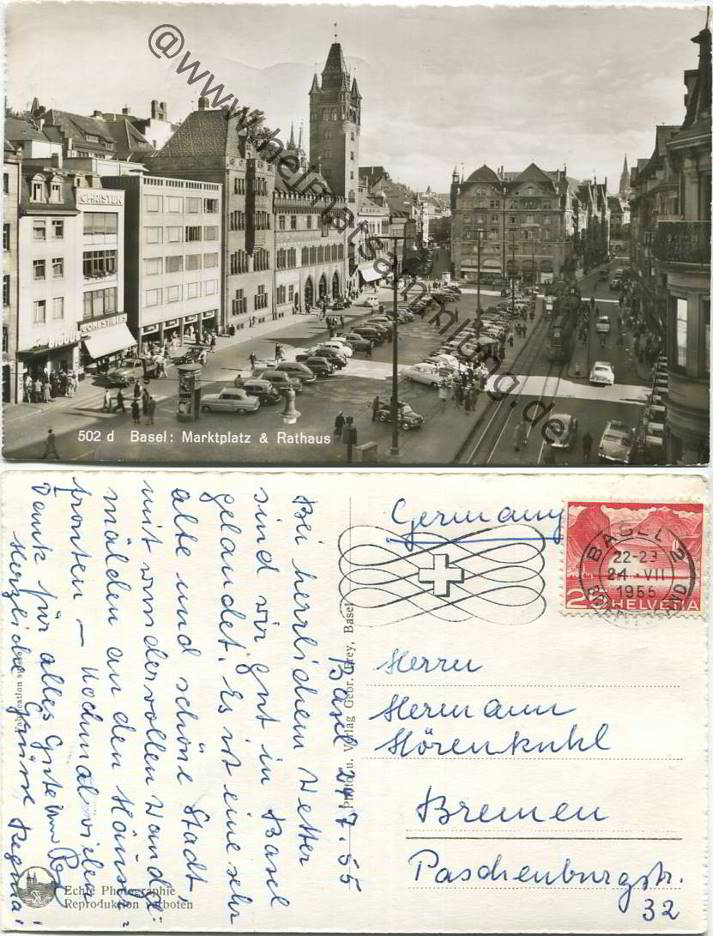 @www.heimatsammlung.de
CHRISTEN
502 d Basel: Marktplatz & Rathaus
Germany
BASEL 2
22-23
24.VII
1955
HELVETIA
Herrn
Hermann
Hörenkuhl
Bremen
Paschenburgstr.
32
Basel 24.7.55
Bei herrlichem Wetter
sind wir gut in Basel
gelandet. Es ist eine sehr
alte und schöne Stadt
mit wundervollen Wandge-
mälden an den Häuser-
fronten – Nochmal vielen
Dank für alles Gute
Herzliche Grüsse Regina
Verlag Gebr. Frey, Basel
Echte Photographie
Reproduktion verboten